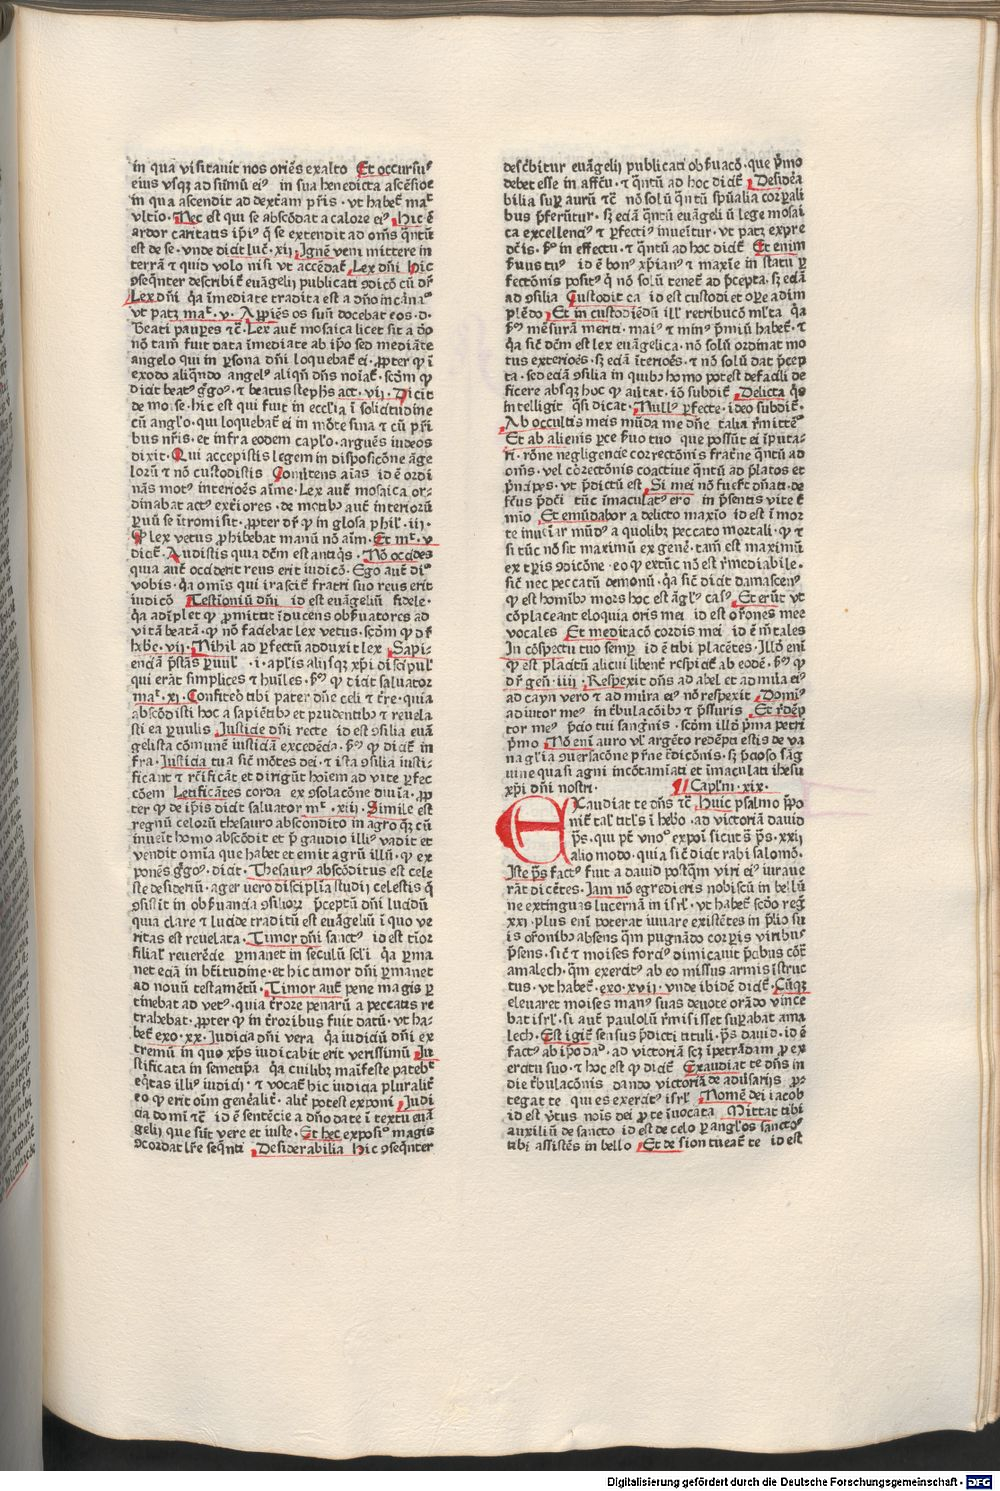 in qua visitauit nos oriēs exalto Et occursuꝰ
eius vsqꝫ ad sūmū eiꝰ in sua benedicta ascēsiōe
in qua ascendit ad dextram pr̄is · vt habet̄ mat̄
vltīo · Nec est qui se abscōdat a calore eiꝰ Hic ē
ardor caritatis ip̄iꝰ q̄ se extendit ad om̄s q̄ntū
est de se · vnde dicit luc̄ · xij · Ignē veni mittere in
terrā ⁊ quid volo nisi vt accēdat̄ Lex dn̄i Hic
ꝯseqn̄ter describit̄ euāgelij publicati ꝯdicō cū dr̄
Lex dn̄i q̄a īmediate tradita est a dn̄o incarnaꝰ
vt patꝫ mat̄ · v · Appiēs os suū docebat eos · d ·
Beati paupes ⁊c̄ · Lex aut̄ mosaica licet sit a deo
nō tam̄ fuit data īmediate ab ip̄o sed mediāte
angelo qui in ꝑsona dn̄i loquebat̄ ei · ꝓpter qꝫ ī
exodo aliqn̄do angelꝰ aliqn̄ dn̄s noīat̄ · scd̄m qꝫ
dicit beatꝰ g̃gꝰ · ⁊ beatus stephꝰ act · vij · Dicit
de moise · hic est qui fuit in eccl̄ia ī solicitudine
cū angl̄o · qui loquebat̄ ei in mōte sina ⁊ cū pr̄i
bus nr̄is · et infra eodem capl̄o · arguēs iudeos
dixit · Qui accepistis legem in disposicōne āge
lorū ⁊ nō custodistis Cōuertens aīas id ē ordi
nās motꝰ interiōes aīme · Lex aut̄ mosaica or⸗
dinabat actꝰ exteriores · de motibꝰ aut̄ interiorū
ꝑuū se ītromisit · ꝓpter dr̄ qꝫ in glosa phil̄ · iij ·
Qꝫ lex vetus ꝓhibebat manū nō aīm · Et mt̄ · v
dicit̄ · Audistis quia dcm̄ est antiqꝭ · Nō occides
quia aut̄ occiderit reus erit iudicō · Ego aut̄ diꝰ
vobis · q̄a omis qui irascit̄ fratri suo reus erit
iudicō Testimoniū dn̄i id est euāgeliū fidele ·
q̄a adīplet qꝫ ꝓmittit īducens obẜuatores ad
vitā beatā · qꝫ nō faciebat lex vetus · scd̄m qꝫ dr̄
heb̄e · vij · Nihil ad ꝑfectū adduxit lex Sapi⸗
enciā p̄stās ꝑuul̄ · i · apl̄is alijsqꝫ xp̄i discipul̄
qui erāt simplices ⁊ huīles · ẜꝰ qꝫ dicit saluator
mat̄ · xi · Confiteō tibi pater dn̄e celi ⁊ tr̄e · quia
abscōdisti hoc a sapiētibꝰ et prudentibꝰ ⁊ reuela
sti ea ꝑuulis Iusticie dn̄i recte id est ꝯsilia euā
gelista cōmunē iusticiā excedēcia · ẜꝰ qꝫ dicit̄ in
fra · Iusticia tua sic̄ mōtes dei · ⁊ ista ꝯsilia iusti⸗
ficant ⁊ rc̄ificāt et dirigūt hoiem ad vite ꝑfec
cōem Letificātes corda ex ꝯsolacōne diuīa · ꝓp
ter qꝫ de ip̄is dicit saluator mt̄ · xiij · Simile est
regnū celorū thesauro abscondito in agro quē cū
inueīt homo abscōdit et p̄ gaudio illiꝰ vadit et
vendit omīa que habet et emit agrū illū · qꝫ ex
ponēs g̃gꝰ · dicit · Thesaurꝰ abscōditus est cele
ste desideriū · ager uero disciplīa studij celestis q̄
ꝯsistit in obẜuancia ꝯsilioꝝ p̄ceptū dn̄i lucidū
quia clare ⁊ lucide traditū est euāgeliū ī quo ve
ritas est reuelata · Timor dn̄i sanctꝰ id est tīor
filial̄ reuerēcie ꝑmanet in seculū scl̄i q̄a ꝑma
net eciā in bt̄itudine · et hic timor dn̄i ꝑmanet
ad nouū testamētū · Timor aut̄ pene magis ꝑ
tinebat ad vetꝰ · quia tr̄ore penarū a peccatis re
trahebat · ꝓpter qꝫ in tr̄oribus fuit datū · vt ha⸗
bet̄ exo · xx · Iudicia dn̄i vera q̄a iudiciū dn̄i ex
tremū in quo xp̄s iudicabit erit verissimū Iu
stificata in semetip̄a q̄a cuilibꝫ maīfeste patebt̄
eq̄tas illiꝰ iudicij · ⁊ vocat̄ hic iudicia pluralit̄
eo qꝫ erit oīm gen̄alit̄ · alit̄ potest exponi Iudi
cia domī ⁊c̄ id ē sentēcie a dn̄o date ī textu euā
gelij que sūt vere et iuste · Et hec exposiꝰ magis
ꝯcordat lr̄e seqn̄ti Desiderabilia Hic ꝯseqn̄ter
describitur euāgelij publicati obẜuacō · que p̄mo
debet esse in affcū · ⁊ q̄ntū ad hoc dicit̄ Desidera
bilia suꝑ aurū ⁊c̄ nō solū q̄ntū sp̄ualia corꝑali
bus p̄ferūtur · sꝫ eciā q̄ntū euāgelij ū lege mosai
ca excellenciꝰ ⁊ ꝑfectiꝰ inueītur · vt patꝫ expre
dc̄is · ẜo in effectu · ⁊ q̄ntū ad hoc dicit̄ Et enim
ẜuus tuꝰ id ē bonꝰ xp̄ianꝰ ⁊ maxīe in statu ꝑ
fectōnis positꝰ q̄ nō solū tenet̄ ad p̄cepta · sꝫ eciā
ad ꝯsilia Custodit ea id est custodi et oꝑe adim
pl̄edo Et in custodiēdū ill̄ retribucō ml̄ta q̄a
ẜꝰ mēsurā meriti · maiꝰ ⁊ minꝰ p̄miū habet̄ · ⁊
q̄a sic̄ dc̄m est lex euāgelica · nō solū ordinat mo
tus exteriores · sꝫ eciā īteriores · ⁊ nō solū dat p̄cep
ta · sed eciā ꝯsilia in quibꝰ homo potest de facili de
ficere absqꝫ hoc qꝫ aūtat · iō subdit̄ Delicta q̄s
intelligit q̄si dicat · Nullꝰ ꝑfecte · ideo subdit̄ ·
Ab occultis meis mūda me dn̄e talia r̄mittēꝰ
Et ab alienis ꝑce ẜuo tuo que possūt ei īputa⸗
ri · rōne negligencie correctōnis fratr̄ne q̄ntū ad
om̄s · vel correctōnis coactiue q̄ntū ad p̄latos et
p̄ncipes · vt p̄dictū est Si mei nō fuer̄t dn̄ati · de
fc̄us p̄dc̄i tūc īmaculatꝰ ero in p̄sentis vite t̄
mīo Et emūdabor a delicto maxīo id est ī mor
te īueīar mūdꝰ a quolibꝫ peccato mortali · qꝫ ⁊
si tūc nō sit maximū ex gen̄e · tam̄ est maximū
ex tꝑis ꝯdicōne · eo qꝫ extūc nō est r̄mediabile ·
sic̄ nec peccatū demonū · q̄a sic̄ dicit damascenꝰ
qꝫ est homībꝰ mors hoc est āgl̄ꝰ casꝰ Et erūt vt
cōplaceant eloquia oris mei id est or̄ones mee
vocales Et meditacō cordis mei id ē m̄tales
In cōspectu tuo semꝑ id ē tibi placētes · Illd̄ enī
qꝫ est placitū alicui libent̄ respicit̄ ab eodē · ẜꝰ qꝫ
dr̄ gen̄ · iiij · Respexit dn̄s ad abel et ad mūa eiꝰ
ad cayn vero ⁊ ad mūra eiꝰ nō respexit Domīꝰ
adiutor meꝰ in tribulacōibꝰ ⁊ p̄ssuris Et r̄dēp
tor meꝰ p̄cio tui sangnīs · scd̄m illd̄ p̄ma petri
p̄mo Nō enī auro vl̄ argēto redēpti estis de va
na gl̄ia ꝯuersacōne pr̄ne t̄dicōnis · sꝫ p̄cioso sāg
uine quasi agni incōtamīati et īmaculati ihesu
xp̄i dn̄i nostri · ¶ Capl̄m · xix ·
EXaudiat te dn̄s ⁊c̄ Huic psalmo p̄po
nit̄ tal̄ titl̄s ī hebꝰ · ad victoriā dauid
p̄s · qui pt̄ vnoꝰ exponī sicut s̄ p̄s · xxij
alio modo · quia sic̄ dicit rabi salomō ·
Iste p̄s factꝰ fuit a dauid postqm̄ viri eiꝰ iuraue
rāt dicētes · Iam nō egredieris nobiscū in bellū
ne extinguas lucernā in isrl̄ · vt habet̄ scd̄o reg̃
xxi · plus enī poterat iuuare existētes in p̄lio su
is or̄onibꝰ absens q̄m pugnādo corꝑis viribꝰ
p̄sens · sic̄ ⁊ moises forciꝰ dimicauit p̄cibus cōt̄
amalech · q̄m exercitꝰ ab eo missus armis īstruc
tus · vt habet̄ · exo · xvij · vnde ibidē dicit̄ · Cūqꝫ
eleuaret moises manꝰ suas deuote orādo vince
bat isrl̄ · si aut̄ paulolū r̄misisset suꝑabat ama
lech · Est igit̄ sensus p̄dicti tituli · p̄s dauid · id ē
factꝰ ab ip̄o daꝰ · ad victoriā scꝫ īpetrādam ꝓ ex
ercitu suo · ⁊ hoc est qꝫ dicit̄ Exaudiat te dn̄s in
die tribulacōnis dando victoriā de aduersarijs ꝓ⸗
tegat te qui es exercitꝰ isrl̄ Nomē dei iacob
id est v̄tus noīs dei ꝓ te īuocata Mittat tibi
auxiliū de sancto id est de celo ꝑ angl̄os sanctoꝰ
tibi assistēs in bello Et de sion tueat̄ te id est
Digitalisierung gefördert durch die Deutsche Forschungsgemeinschaft - DFG